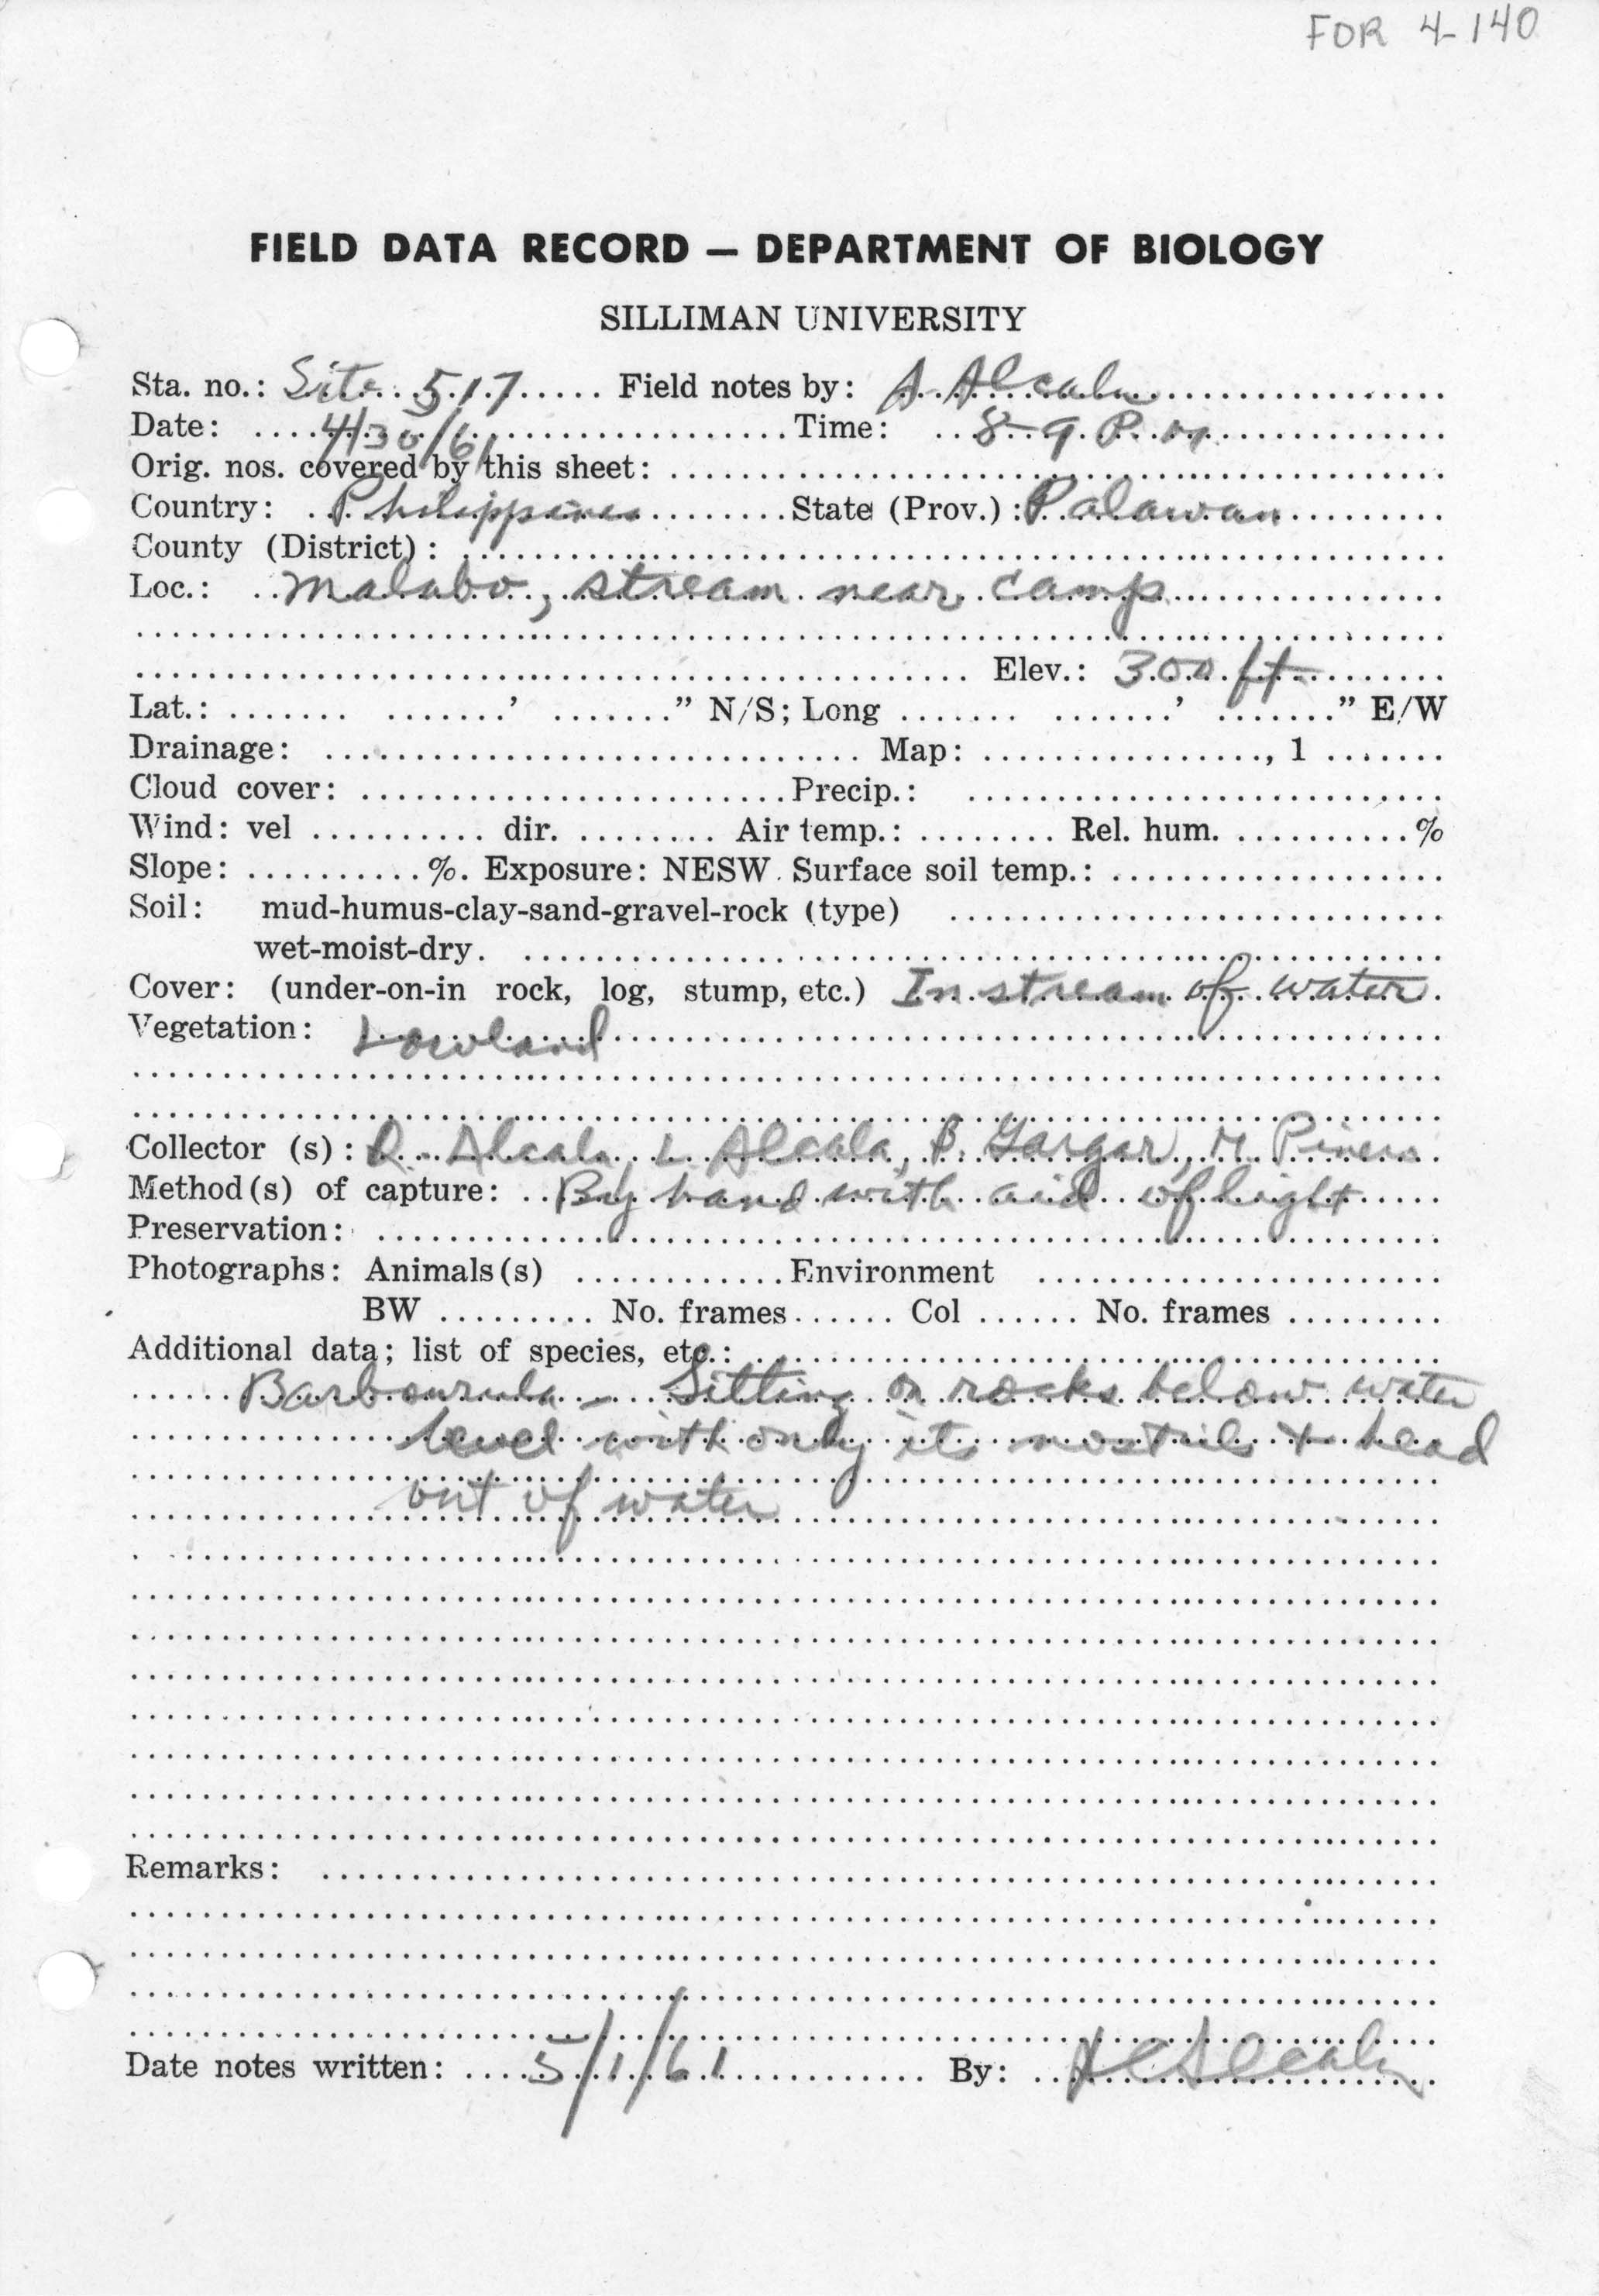 FOR 4-140
FIELD DATA RECORD — DEPARTMENT OF BIOLOGY
SILLIMAN UNIVERSITY
Sta. no.: Site 517 Field notes by: A. Alcala
Date: 4/30/61 Time: 8-9 P.m.
Orig. nos. covered by this sheet:
Country: Philippines State (Prov.): Palawan
County (District):
Loc.: Malabo, stream near camp
Elev.: 300 ft.
Lat.: ' " N/S; Long ' " E/W
Drainage: Map: , 1
Cloud cover: Precip.:
Wind: vel dir. Air temp.: Rel. hum. %
Slope: %. Exposure: NESW. Surface soil temp.:
Soil: mud-humus-clay-sand-gravel-rock (type)
wet-moist-dry.
Cover: (under-on-in rock, log, stump, etc.) In stream of water
Vegetation: Lowland
Collector (s): Alcala, L. Alcala, B. Gargar, M. Pinero
Method(s) of capture: By hand with aid of light
Preservation:
Photographs: Animals(s) Environment
BW No. frames Col No. frames
Additional data; list of species, etc.:
Barbourula - Sitting on rocks below water
level with only its nostrils & head
out of water
Remarks:
Date notes written: 5/1/61 By: A C Alcala